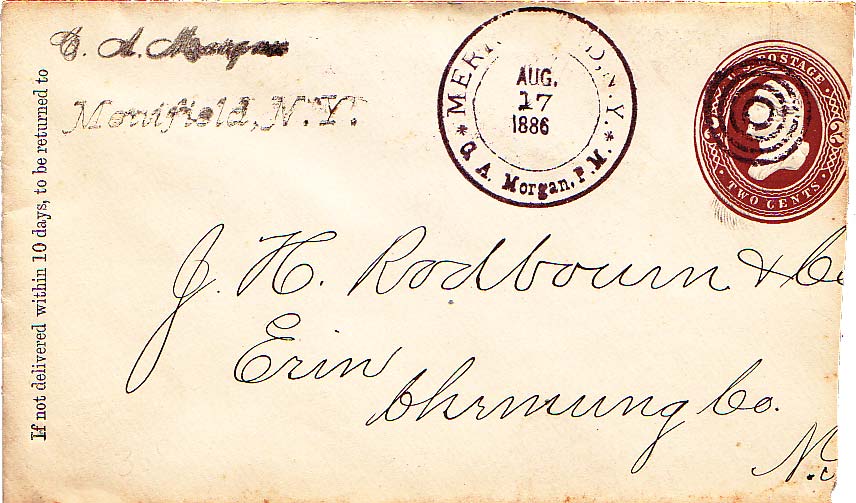 If not delivered within 10 days, to be returned to
C. A. Morgan
Merrifield, N.Y.
MERR D, N.Y.
AUG.
17
1886
C. A. Morgan, P.M.
U.S. POSTAGE
TWO CENTS
J. H. Rodbourn & Co
Erin
Chrmung Co.
N.